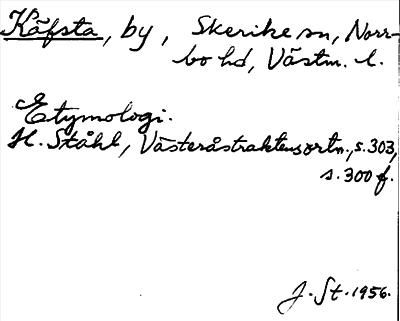 Käfsta, by, Skerike sn, Norr-
bo hd, Västm. l.
Etymologi.
H. Ståhl, Västeråstraktens ortn., s. 303,
s. 300 f.
J. St. 1956.